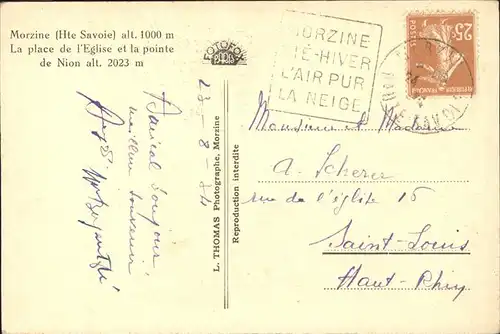 Morzine (Hte Savoie) alt. 1000 m
La place de l'Eglise et la pointe
de Nion alt. 2023 m
Amical bonjour,
meilleur souvenir
23-8-34
L. THOMAS Photographe, Morzine
Reproduction interdite
FOTOFOX
MORZINE
ÉTÉ-HIVER
L'AIR PUR
LA NEIGE
25c
POSTES
REPUBLIQUE FRANÇAISE
HAUTE-SAVOIE
Monsieur et Madame
A. Scherer
rue de l'église 15
Saint-Louis
Haut-Rhin